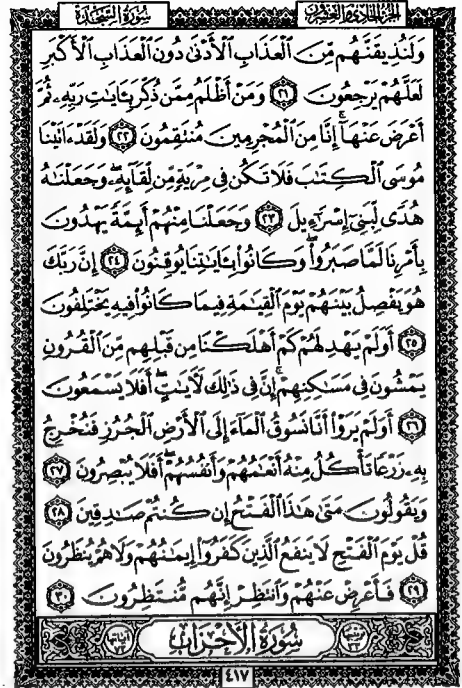 الجزء الحادي والعشرون
سورة السجدة
وَلَنُذِيقَنَّهُم مِّنَ ٱلْعَذَابِ ٱلْأَدْنَىٰ دُونَ ٱلْعَذَابِ ٱلْأَكْبَرِ
لَعَلَّهُمْ يَرْجِعُونَ ٢١ وَمَنْ أَظْلَمُ مِمَّن ذُكِّرَ بِـَٔايَٰتِ رَبِّهِۦ ثُمَّ
أَعْرَضَ عَنْهَآ ۚ إِنَّا مِنَ ٱلْمُجْرِمِينَ مُنتَقِمُونَ ٢٢ وَلَقَدْ ءَاتَيْنَا
مُوسَى ٱلْكِتَٰبَ فَلَا تَكُن فِى مِرْيَةٍ مِّن لِّقَآئِهِۦ ۖ وَجَعَلْنَٰهُ
هُدًى لِّبَنِىٓ إِسْرَٰٓءِيلَ ٢٣ وَجَعَلْنَا مِنْهُمْ أَئِمَّةً يَهْدُونَ
بِأَمْرِنَا لَمَّا صَبَرُوا۟ ۖ وَكَانُوا۟ بِـَٔايَٰتِنَا يُوقِنُونَ ٢٤ إِنَّ رَبَّكَ
هُوَ يَفْصِلُ بَيْنَهُمْ يَوْمَ ٱلْقِيَٰمَةِ فِيمَا كَانُوا۟ فِيهِ يَخْتَلِفُونَ
٢٥ أَوَلَمْ يَهْدِ لَهُمْ كَمْ أَهْلَكْنَا مِن قَبْلِهِم مِّنَ ٱلْقُرُونِ
يَمْشُونَ فِى مَسَٰكِنِهِمْ ۚ إِنَّ فِى ذَٰلِكَ لَـَٔايَٰتٍ ۖ أَفَلَا يَسْمَعُونَ
٢٦ أَوَلَمْ يَرَوْا۟ أَنَّا نَسُوقُ ٱلْمَآءَ إِلَى ٱلْأَرْضِ ٱلْجُرُزِ فَنُخْرِجُ
بِهِۦ زَرْعًا تَأْكُلُ مِنْهُ أَنْعَٰمُهُمْ وَأَنفُسُهُمْ ۖ أَفَلَا يُبْصِرُونَ ٢٧
وَيَقُولُونَ مَتَىٰ هَٰذَا ٱلْفَتْحُ إِن كُنتُمْ صَٰدِقِينَ ٢٨
قُلْ يَوْمَ ٱلْفَتْحِ لَا يَنفَعُ ٱلَّذِينَ كَفَرُوٓا۟ إِيمَٰنُهُمْ وَلَا هُمْ يُنظَرُونَ
٢٩ فَأَعْرِضْ عَنْهُمْ وَٱنتَظِرْ إِنَّهُم مُّنتَظِرُونَ ٣٠
ترتيبها ٣٣ سورة الأحزاب آياتها ٧٣
٤١٧